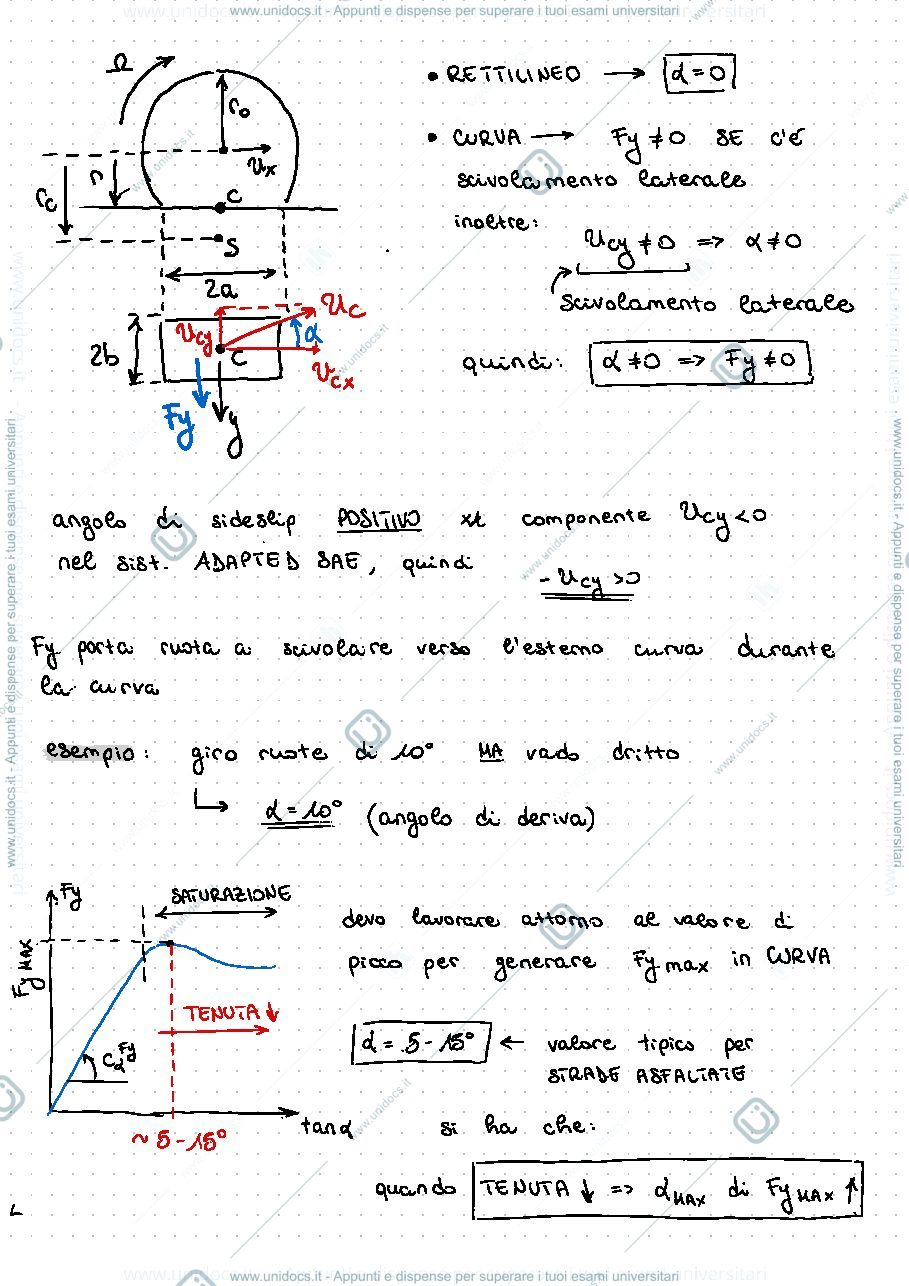 www.unidocs.it - Appunti e dispense per superare i tuoi esami universitari
Ω
r₀
u_x
r
r_c
C
S
2a
2b
u_cy
u_c
α
C
u_cx
Fy
y
• RETTILINEO → α = 0
• CURVA → Fy ≠ 0 SE c'é
scivolamento laterale
inoltre:
u_cy ≠ 0 => α ≠ 0
scivolamento laterale
quindi: α ≠ 0 => Fy ≠ 0
angolo di sideslip POSITIVO xt componente u_cy < 0
nel sist. ADAPTED SAE, quindi
- u_cy > 0
Fy porta ruota a scivolare verso l'esterno curva durante
la curva
esempio: giro ruote di 10° MA vado dritto
α = 10° (angolo di deriva)
Fy
SATURAZIONE
Fy MAX
TENUTA ↓
C_α^Fy
tanα
~ 5 - 15°
devo lavorare attorno al valore di
picco per generare Fy max in CURVA
α = 5 - 15° ← valore tipico per
STRADE ASFALTATE
si ha che:
quando TENUTA ↓ => α_MAX di Fy MAX ↑
www.unidocs.it - Appunti e dispense per superare i tuoi esami universitari
www.unidocs.it - Appunti e dispense per superare i tuoi esami universitari
www.unidocs.it - Appunti e dispense per superare i tuoi esami universitari